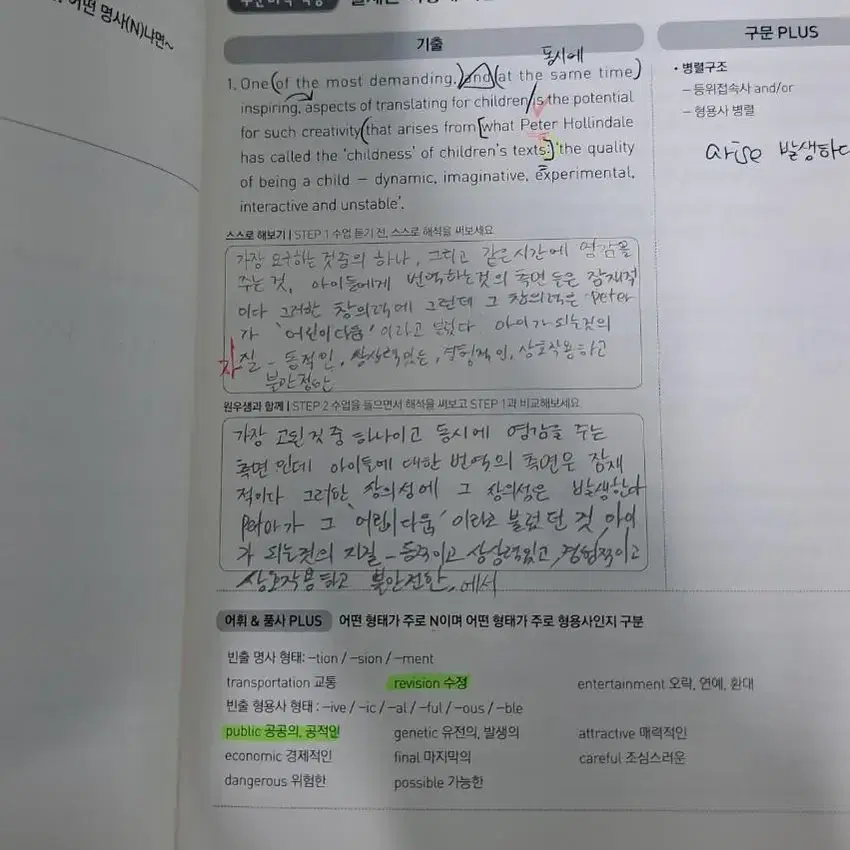 어떤 명사(N)냐면~
기출
구문 PLUS
동시에
1. One of the most demanding, and at the same time
inspiring, aspects of translating for children is the potential
for such creativity that arises from what Peter Hollindale
has called the 'childness' of children's texts: 'the quality
of being a child – dynamic, imaginative, experimental,
interactive and unstable'.
• 병렬구조
– 등위접속사 and/or
– 형용사 병렬
arise 발생하다
스스로 해보기 | STEP 1 수업 듣기 전, 스스로 해석을 써보세요
가장 요구하는 것중의 하나, 그리고 같은시간에 영감을
주는 것, 아이들에게 번역하는것의 측면 들은 잠재적
이다 그러한 창의력에 그런데 그 창의력은 Peter
가 '어린이다움' 이라고 불렀다 아이가 되는것의
자질 – 동적인, 상상력있는, 경험적인, 상호작용하고
불안정한
원우쌤과 함께 | STEP 2 수업을 들으면서 해석을 써보고 STEP 1과 비교해보세요
가장 고된것 중 하나이고 동시에 영감을 주는
측면 인데 아이들에 대한 번역의 측면은 잠재
적이다 그러한 창의성에 그 창의성은 발생한다
가 그 '어린이다움' 이라고 불렀던 것, 아이
가 되는것의 자질 – 동적이고 상상력있고, 경험적이고
상호작용하고 불안전한, 에서
어휘 & 품사 PLUS 어떤 형태가 주로 N이며 어떤 형태가 주로 형용사인지 구분
빈출 명사 형태: –tion / –sion / –ment
transportation 교통 revision 수정 entertainment 오락, 연예, 환대
빈출 형용사 형태 : –ive / –ic / –al / –ful / –ous / –ble
public 공공의, 공적인 genetic 유전의, 발생의 attractive 매력적인
economic 경제적인 final 마지막의 careful 조심스러운
dangerous 위험한 possible 가능한